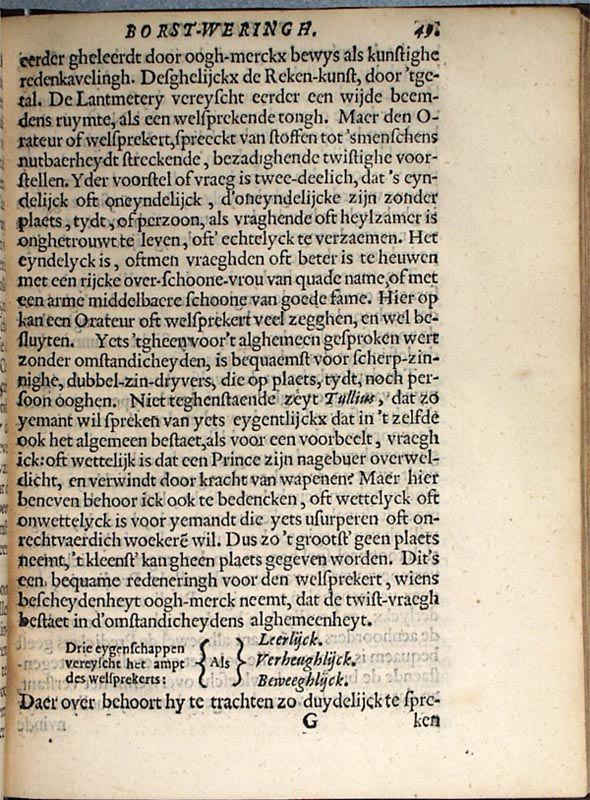 BORST-WERINGH. 49.
eerder gheleerdt door oogh-merckx bewys als kunstighe
redenkavelingh. Desghelijckx de Reken-kunst, door 'tge-
tal. De Lantmetery vereyscht eerder een wijde beem-
dens ruymte, als een welsprekende tongh. Maer den O-
rateur of welsprekert, spreeckt van stoffen tot 'smenschens
nutbaerheydt streckende, bezadighende twistighe voor-
stellen. Yder voorstel of vraeg is twee-deelich, dat 's eyn-
delijck oft oneyndelijck, d'oneyndelijcke zijn zonder
plaets, tydt, of perzoon, als vraghende oft heylzamer is
onghetrouwt te leven, oft' echtelyck te verzaemen. Het
eyndelyck is, oftmen vraeghden oft beter is te heuwen
met een rijcke over-schoone-vrou van quade name, of met
een arme middelbaere schoone van goede fame. Hier op
kan een Orateur oft welsprekert veel zegghen, en wel be-
sluyten. Yets 'tgheen voor't alghemeen gesproken wert
zonder omstandicheyden, is bequaemst voor scherp-zin-
nighe, dubbel-zin-dryvers, die op plaets, tydt, noch per-
soon ooghen. Niet teghenstaende zeyt Tullius, dat zo
yemant wil spreken van yets eygentlijckx dat in 't zelfde
ook het algemeen bestaet, als voor een voorbeelt, vraegh
ick: oft wettelijk is dat een Prince zijn nagebuer overwel-
dicht, en verwindt door kracht van wapenen? Maer hier
beneven behoor ick ook te bedencken, oft wettelyck oft
onwettelyck is voor yemandt die yets usurperen oft on-
rechtvaerdich woekerē wil. Dus zo 't grootst' geen plaets
neemt, 't kleenst' kan gheen plaets gegeven worden. Dit's
een bequame redeneringh voor den welsprekert, wiens
bescheydenheyt oogh-merck neemt, dat de twist-vraegh
bestaet in d'omstandicheydens alghemeenheyt.
Drie eygenschappen
vereyscht het ampt
des welsprekerts:
{ Als }
Leerlijck.
Verheughlijck.
Beweeghlijck.
Daer over behoort hy te trachten zo duydelijck te spre-
G ken